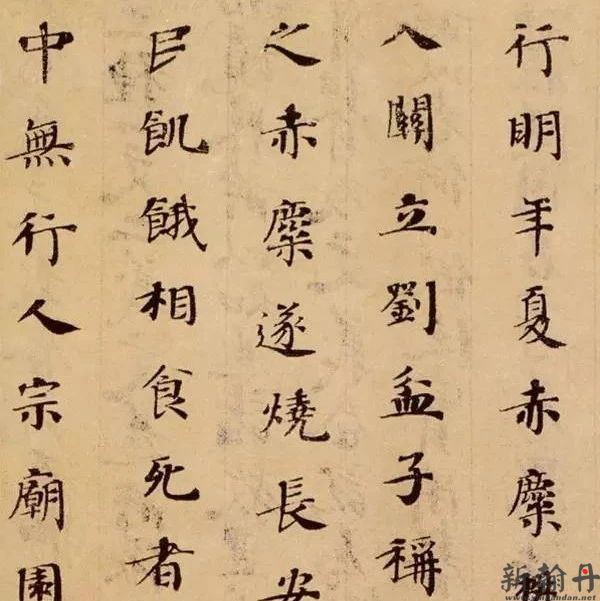 行明年夏赤糜
入關立劉盆子稱
之赤糜遂燒長安
民飢餓相食死者
中無行人宗廟園
新翰丹